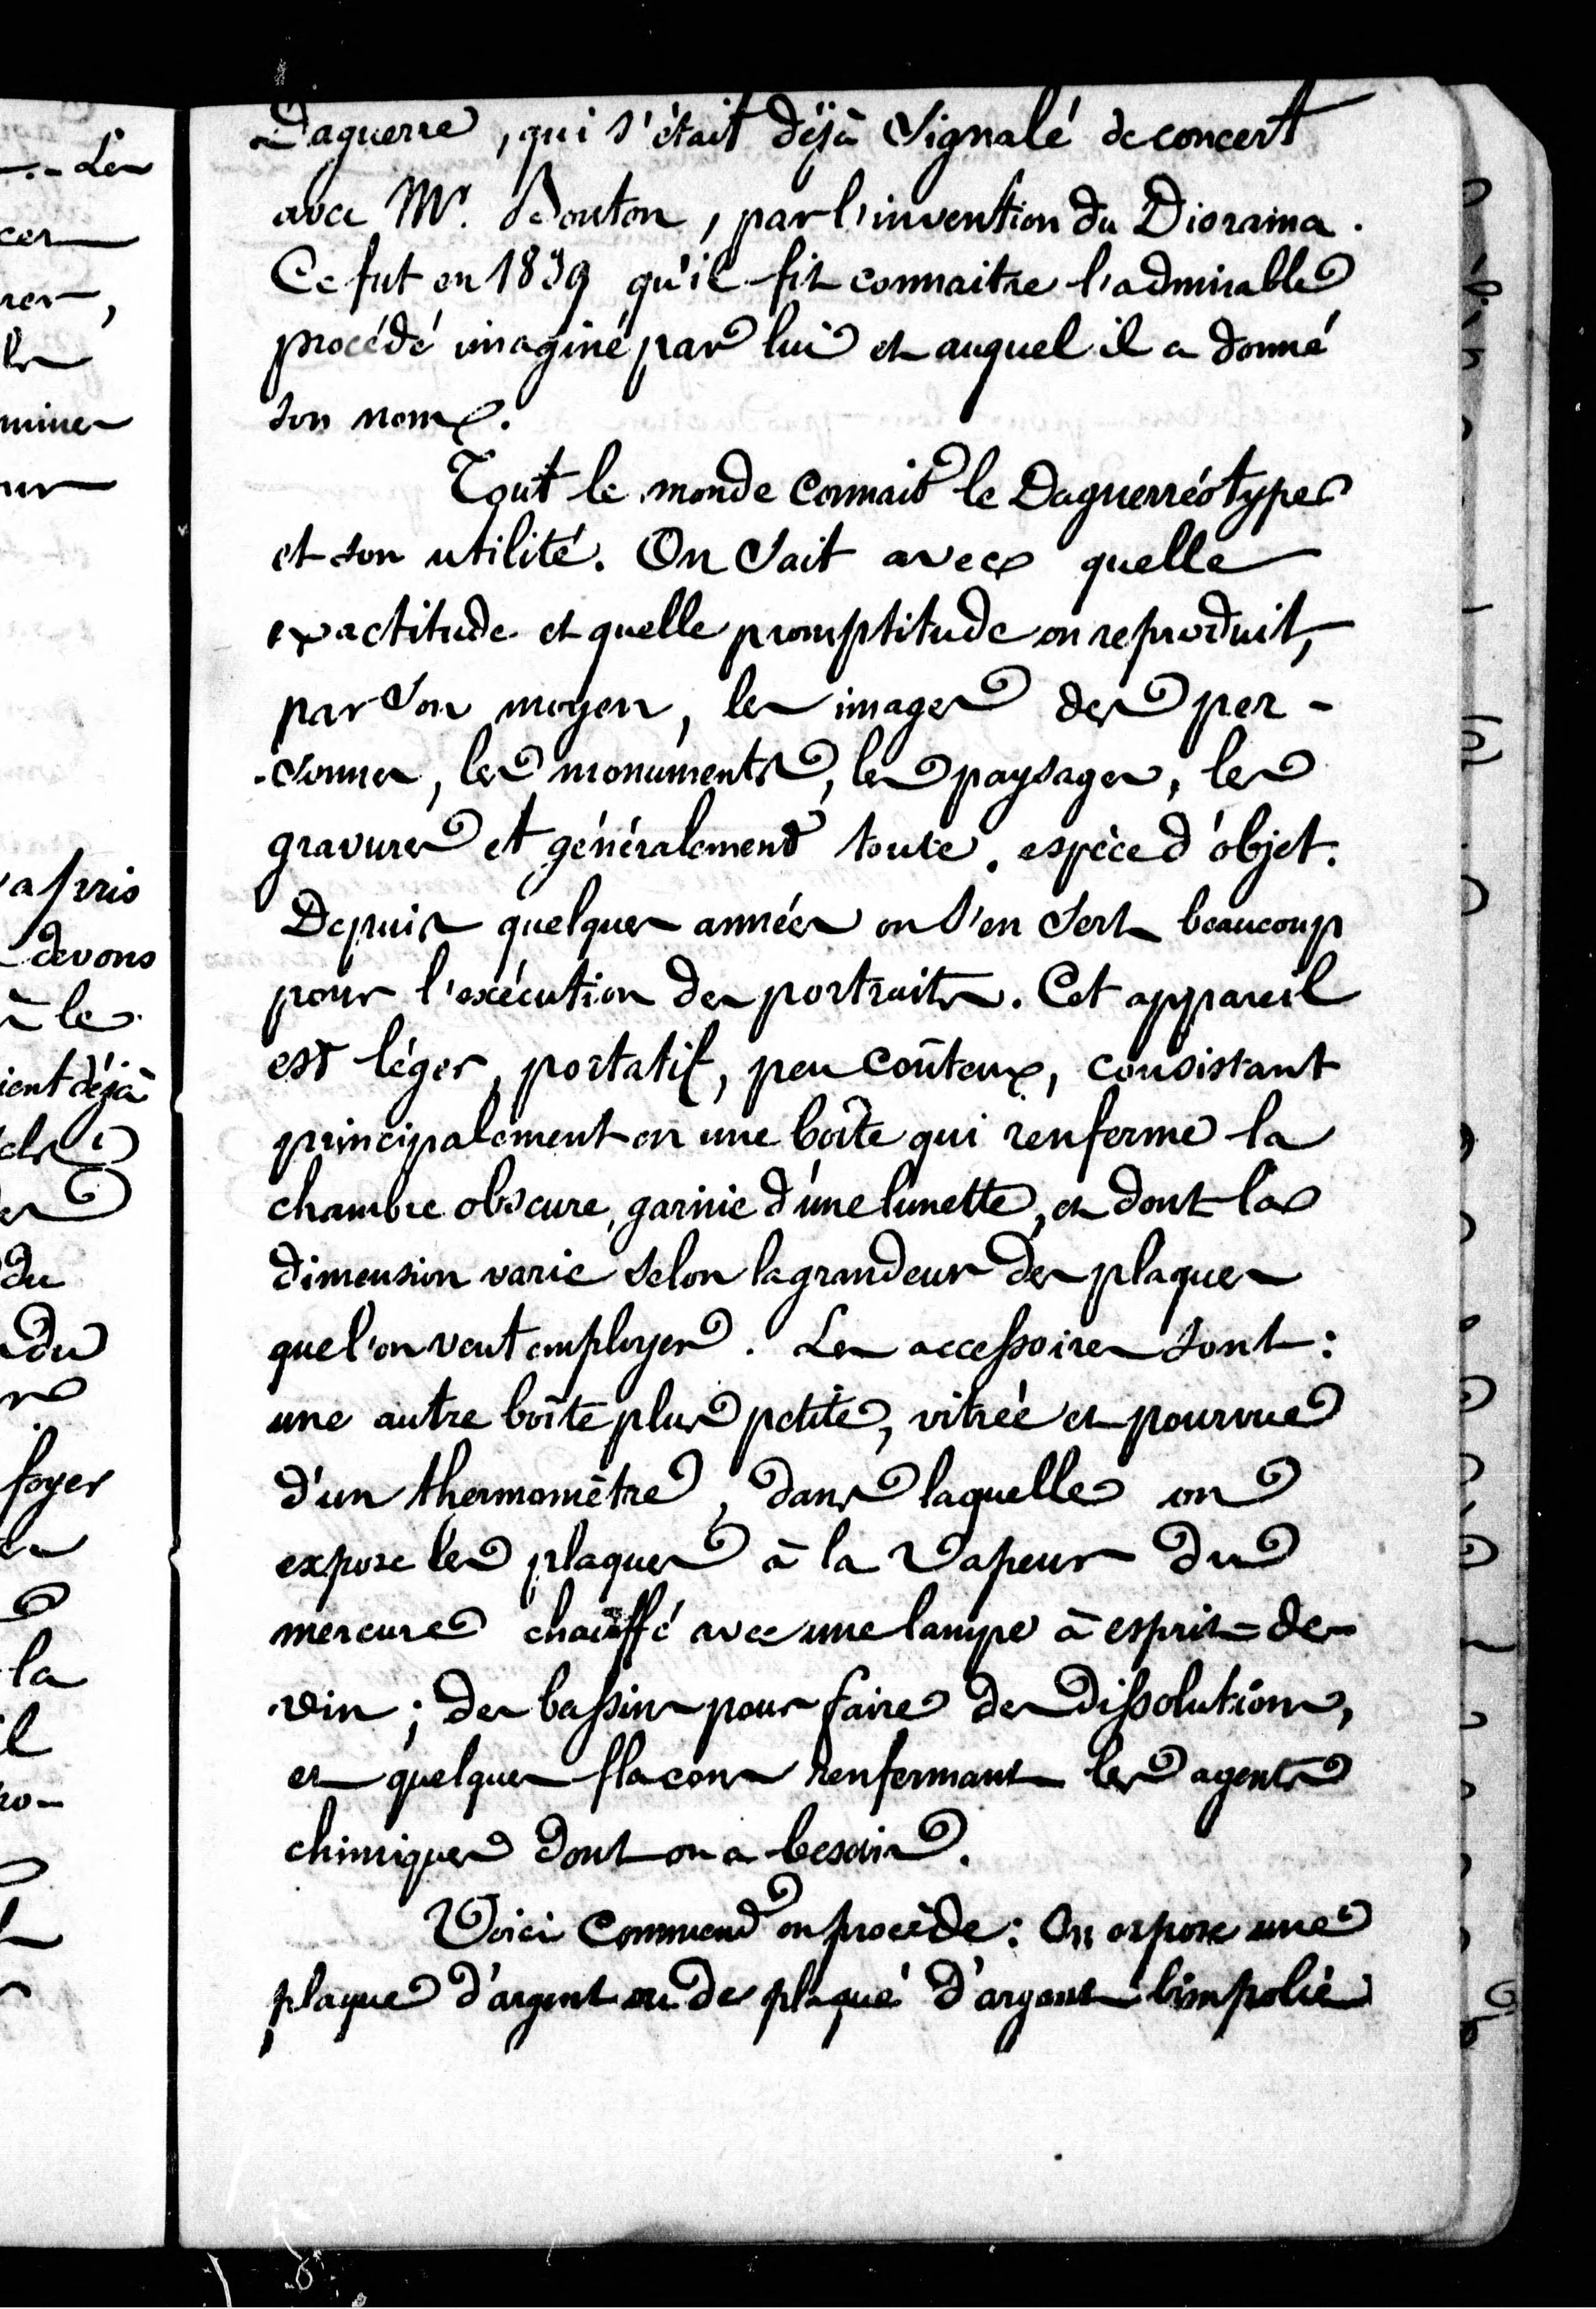 Daguerre, qui s'était déjà signalé de concert
avec Mr. Bouton, par l'invention du Diorama.
Ce fut en 1839 qu'il fit connaitre l'admirable
procédé imaginé par lui et auquel il a donné
son nom.
Tout le monde connait le Daguerréotype
et son utilité. On sait avec quelle
exactitude et quelle promptitude on reproduit,
par son moyen, les images des per-
-sonnes, les monuments, les paysages, les
gravures et généralement toute espèce d'objet.
Depuis quelques années on s'en sert beaucoup
pour l'exécution des portraits. Cet appareil
est léger, portatif, peu coûteux, consistant
principalement en une boîte qui renferme la
chambre obscure, garnie d'une lunette, et dont la
dimension varie selon la grandeur des plaques
que l'on veut employer. Les accessoires sont :
une autre boîte plus petite, vitrée et pourvue
d'un thermomètre, dans laquelle on
expose les plaques à la vapeur du
mercure chauffé avec une lampe à esprit=de-
vin ; des bassins pour faire des dissolutions,
et quelques flacons renfermant les agents
chimiques dont on a besoin.
Voici comment on procède : On expose une
plaque d'argent ou de plaqué d'argent